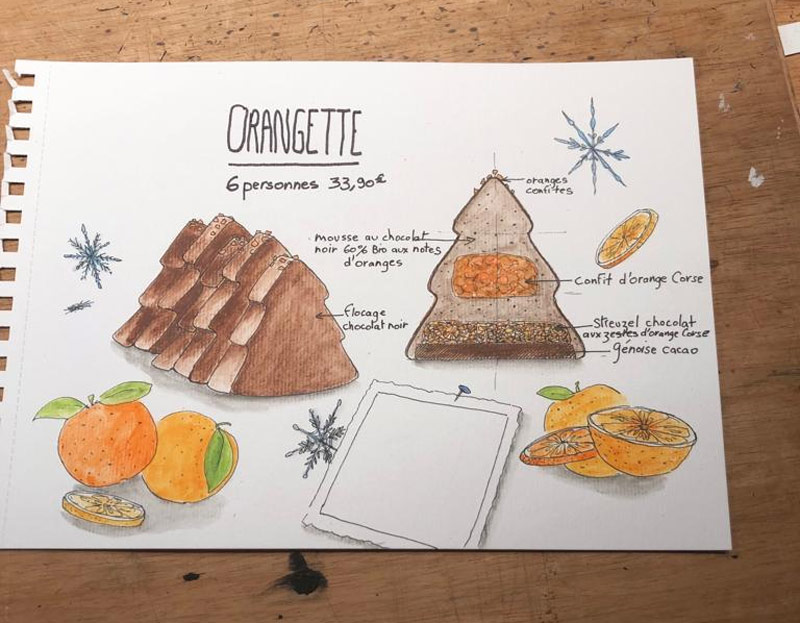 ORANGETTE
6 personnes 33,90€
oranges
confites
mousse au chocolat
noir 60% Bio aux notes
d'oranges
Confit d'orange Corse
flocage
chocolat noir
Streuzel chocolat
aux zestes d'orange Corse
génoise cacao